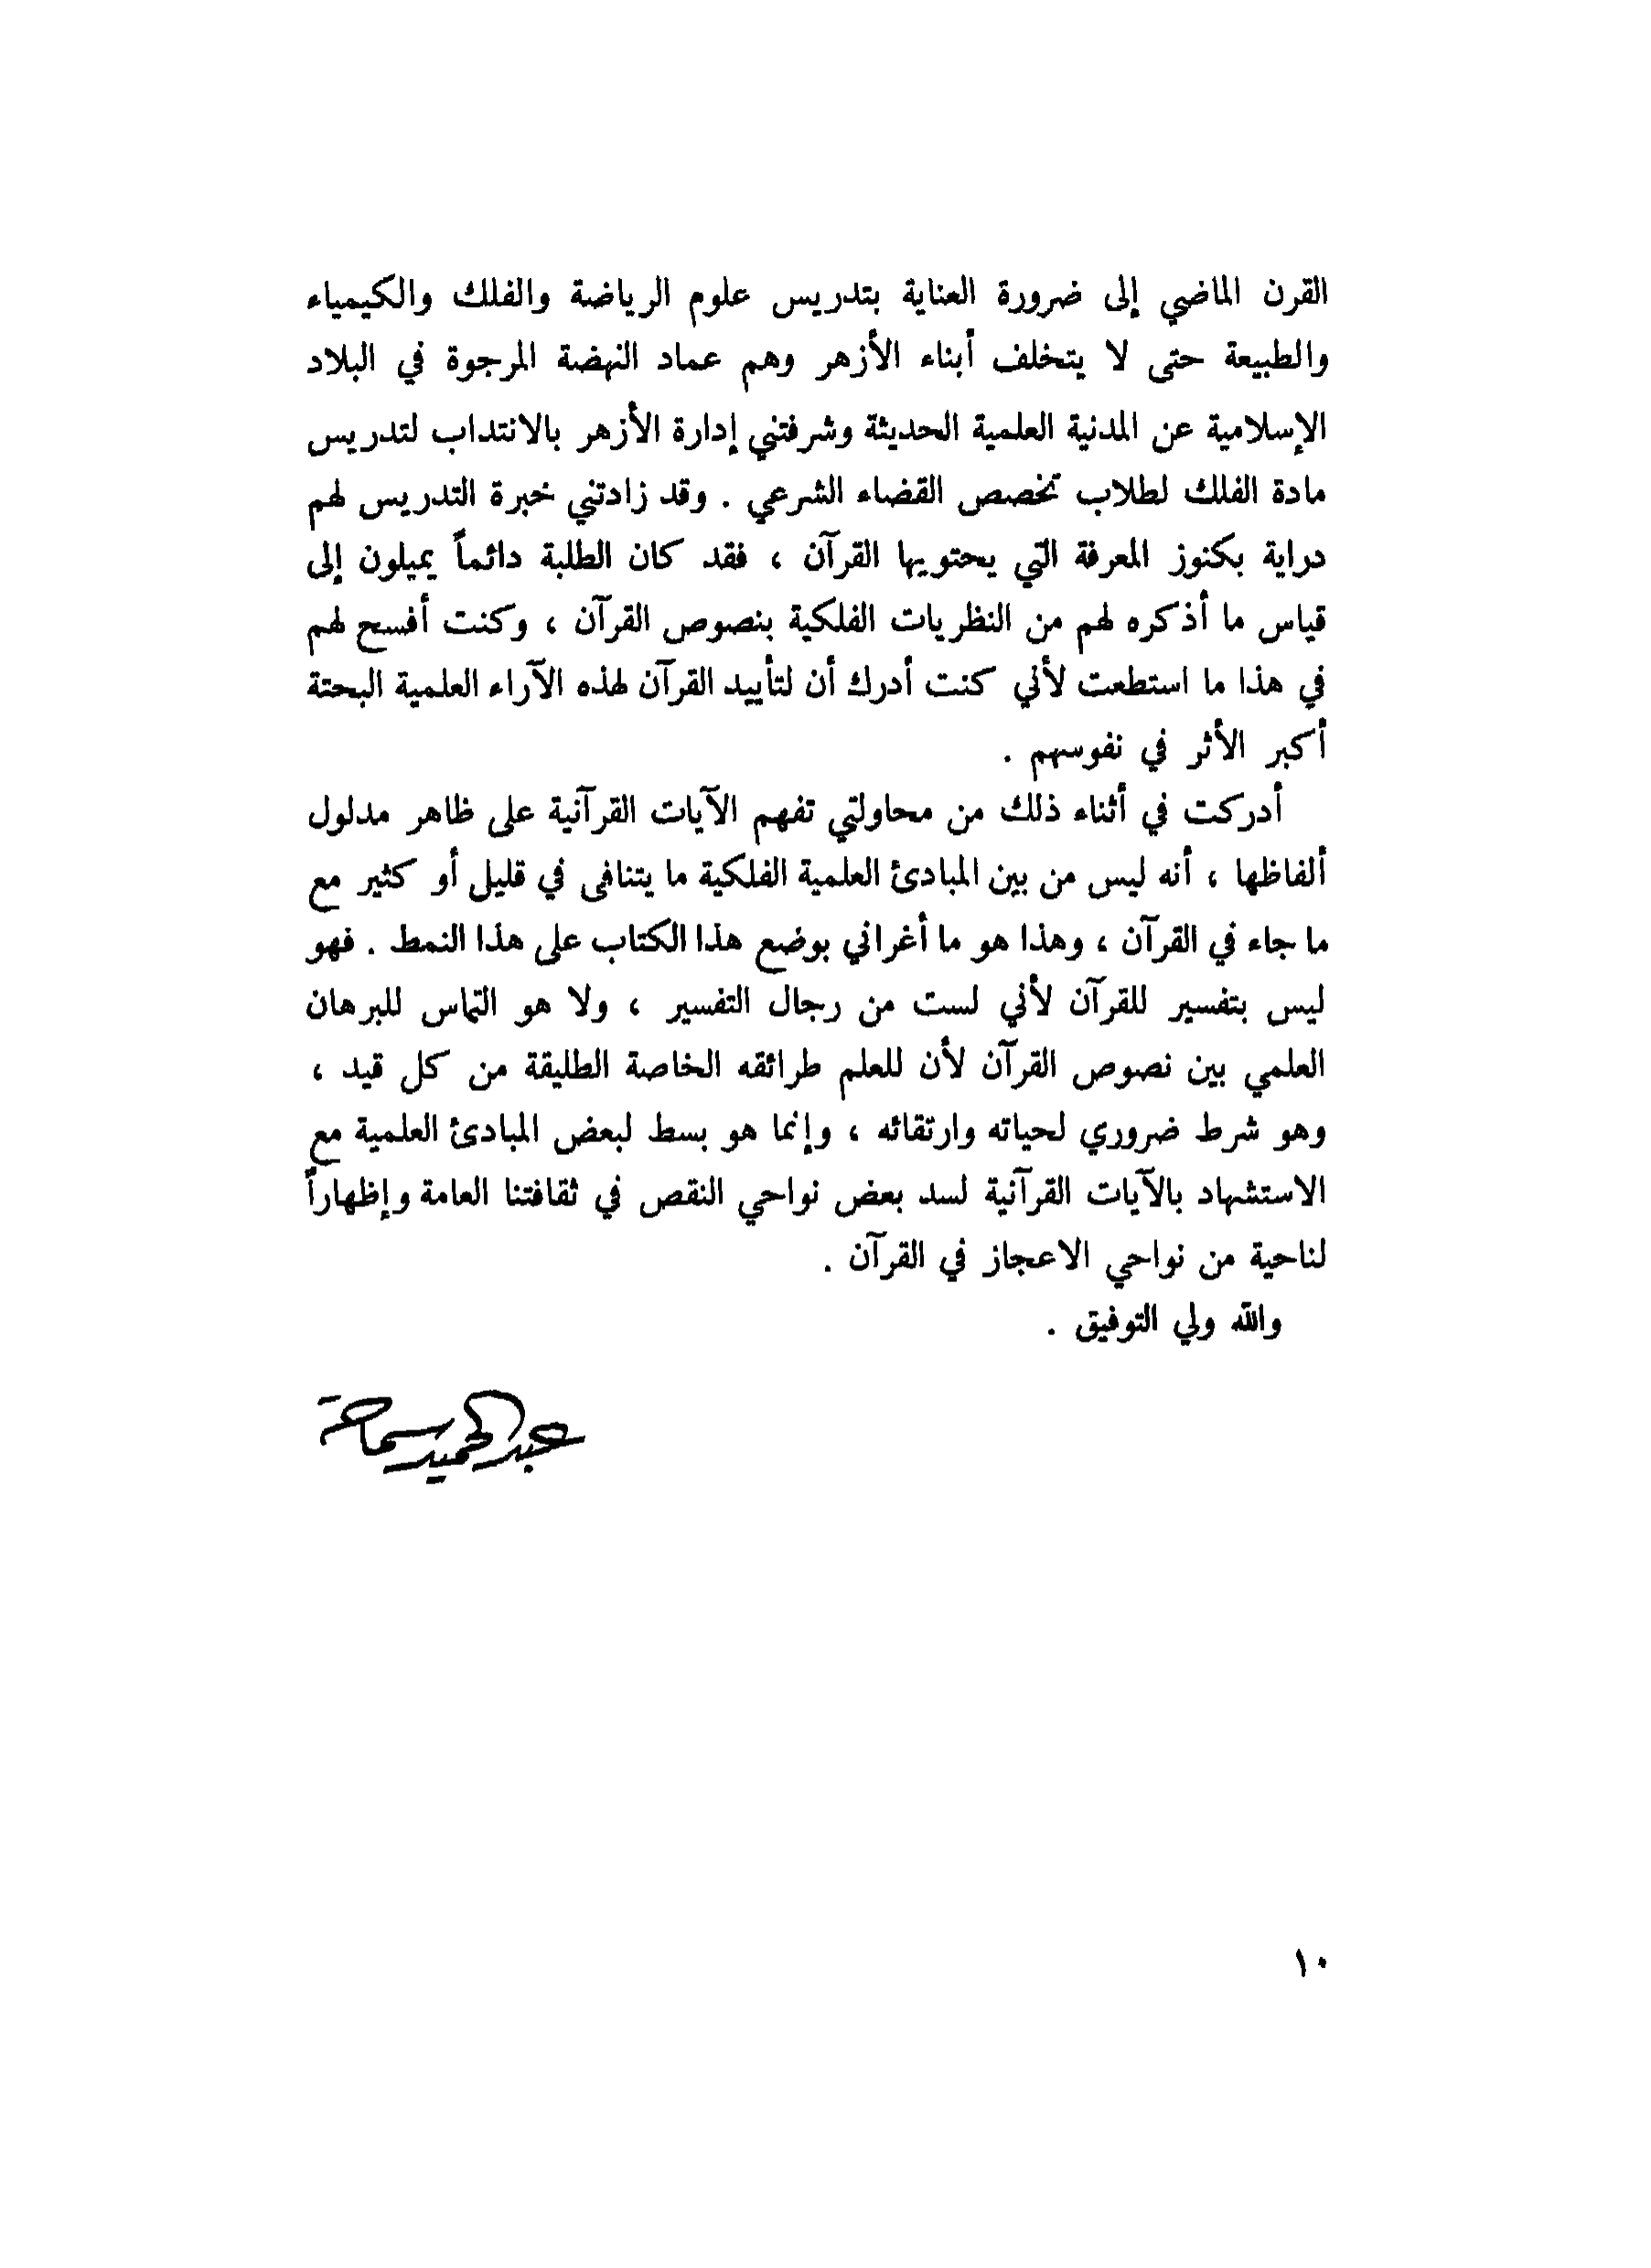 القرن الماضي إلى ضرورة العناية بتدريس علوم الرياضة والفلك والكيمياء
والطبيعة حتى لا يتخلف أبناء الأزهر وهم عماد النهضة المرجوة في البلاد
الإسلامية عن المدنية العلمية الحديثة وشرفتني إدارة الأزهر بالانتداب لتدريس
مادة الفلك لطلاب تخصص القضاء الشرعي . وقد زادتني خبرة التدريس لهم
دراية بكنوز المعرفة التي يحتويها القرآن ، فقد كان الطلبة دائماً يميلون إلى
قياس ما أذكره لهم من النظريات الفلكية بنصوص القرآن ، وكنت أفسح لهم
في هذا ما استطعت لأني كنت أدرك أن لتأييد القرآن لهذه الآراء العلمية البحتة
أكبر الأثر في نفوسهم .
أدركت في أثناء ذلك من محاولتي تفهم الآيات القرآنية على ظاهر مدلول
ألفاظها ، أنه ليس من بين المبادئ العلمية الفلكية ما يتنافى في قليل أو كثير مع
ما جاء في القرآن ، وهذا هو ما أغراني بوضع هذا الكتاب على هذا النمط . فهو
ليس بتفسير للقرآن لأني لست من رجال التفسير ، ولا هو التماس للبرهان
العلمي بين نصوص القرآن لأن للعلم طرائقه الخاصة الطليقة من كل قيد ،
وهو شرط ضروري لحياته وارتقائه ، وإنما هو بسط لبعض المبادئ العلمية مع
الاستشهاد بالآيات القرآنية لسد بعض نواحي النقص في ثقافتنا العامة وإظهاراً
لناحية من نواحي الاعجاز في القرآن .
والله ولي التوفيق .
عبد الحميد سماحة
١٠